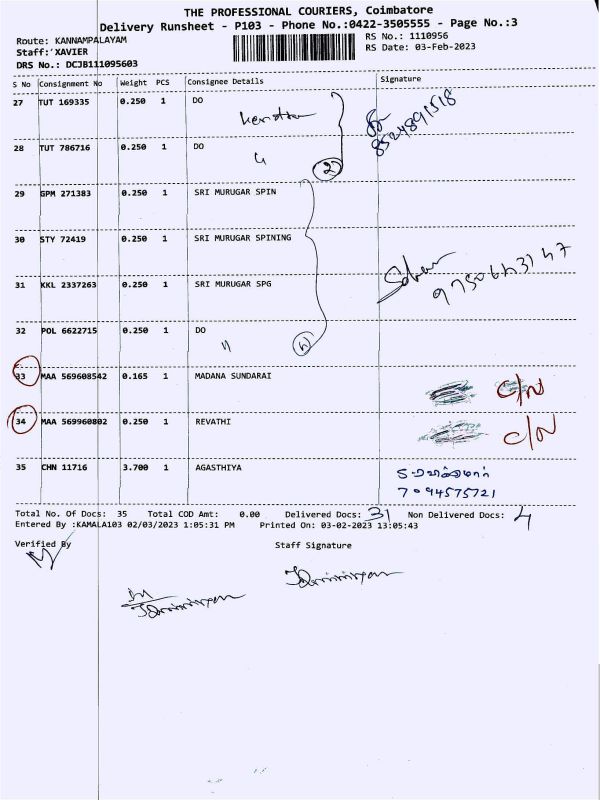 THE PROFESSIONAL COURIERS, Coimbatore
Delivery Runsheet - P103 - Phone No.:0422-3505555 - Page No.:3
Route: KANNAMPALAYAM
RS No.: 1110956
Staff: XAVIER
RS Date: 03-Feb-2023
DRS No.: DCJB111095603
S No Consignment No Weight PCS Consignee Details Signature
27 TUT 169335 0.250 1 DO
8524891518
28 TUT 786716 0.250 1 DO
2
29 GPM 271383 0.250 1 SRI MURUGAR SPIN
30 STY 72419 0.250 1 SRI MURUGAR SPINING
31 KKL 2337263 0.250 1 SRI MURUGAR SPG
32 POL 6622715 0.250 1 DO
33 MAA 569608542 0.165 1 MADANA SUNDARAI
C/N
34 MAA 569960802 0.250 1 REVATHI
C/N
35 CHN 11716 3.700 1 AGASTHIYA
7094575721
Total No. Of Docs: 35 Total COD Amt: 0.00 Delivered Docs: 31 Non Delivered Docs: 4
Entered By :KAMALA103 02/03/2023 1:05:31 PM Printed On: 03-02-2023 13:05:43
Verified By Staff Signature